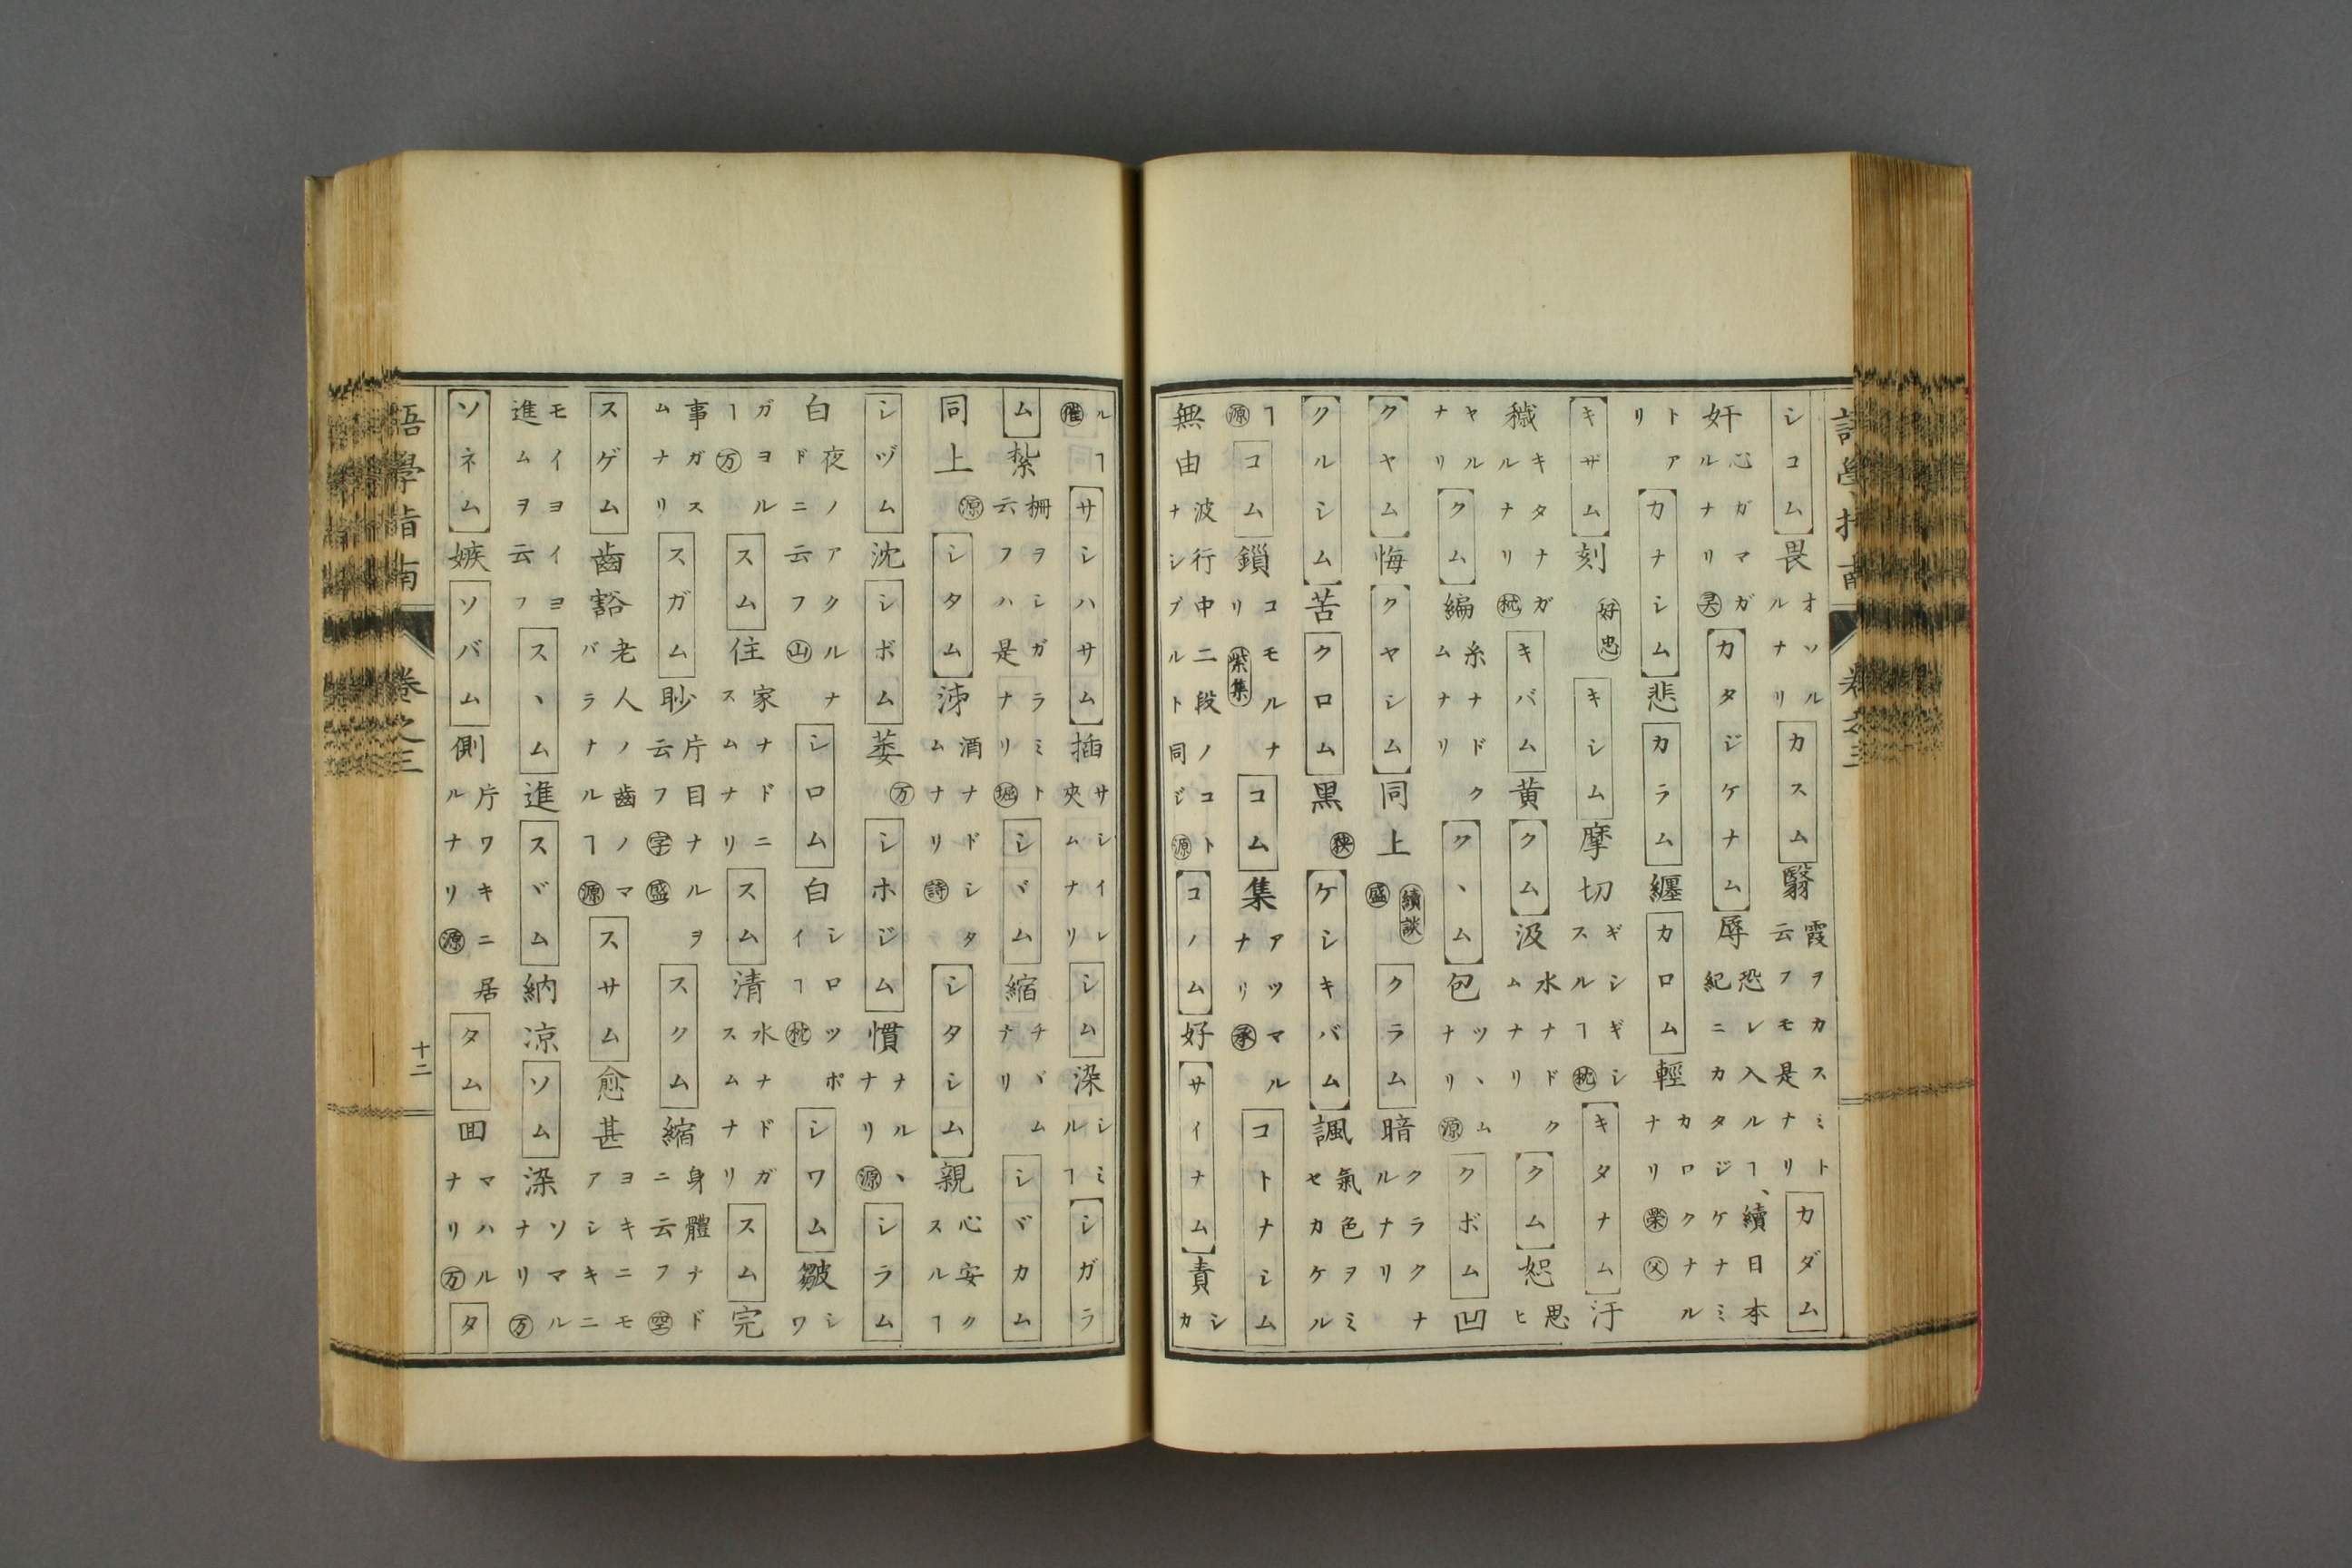 シコム畏オソルルナリカスム翳霞ヲカスミト云フモ是ナリカダム
奸心ガマガルナリ㋜カタジケナム辱恐レ入ルヿ、續日本紀ニカタジケナミ
トアリカナシム悲カラム纏カロム輕カロクナルナリ榮父
キザム刻好忠キシム摩切ギシギシスルヿ枕キタナム汙
穢キタナガルナリ枕キバム黄クム汲水ナドクムナリクム恕思ヒ
ヤルナリクム編糸ナドクムナリクヽム包ツヽムナリ源クボム凹
クヤム悔クヤシム同上續談盛クラム暗クラクナルナリ
クルシム苦クロム黒狭ケシキバム諷氣色ヲミセカケル
ヿ源コム鎖コモルナリ紫集コム集アツマルナリ承コトナシム
無由波行中二段ノコトナシブルト同ジ源コノム好サイナム責シカ
ルヿ催サシハサム插サシイレ夾ムナリシム染シミルヿシガラ
ム紮柵ヲシガラミト云フハ是ナリ堀シヾム縮チヾムナリシヾカム
同上源シタム沛酒ナドシタムナリ詩シタシム親心安クスルヿ
シヅム沈シボム萎万シホジム慣ナルヽナリ源シラム
白夜ノアクルナドニ云フ山シロム白シロツポイヿ枕シワム皺シワ
ガヨルヿ万スム住家ナドニスムナリスム清水ナドガスムナリスム完
事ガスムナリスガム眇片目ナルヲ云フ字盛スクム縮身體ナドニ云フ空
スゲム齒豁老人ノ齒ノマバラナルヿ源スサム愈甚ヨキニモアシキニ
モイヨイヨ進ムヲ云フスヽム進スヾム納凉ソム染ソマルナリ万
ソネム嫉ソバム側片ワキニ居ルナリ源タム囬マハルナリ万タ
語學指南 卷之三 十二